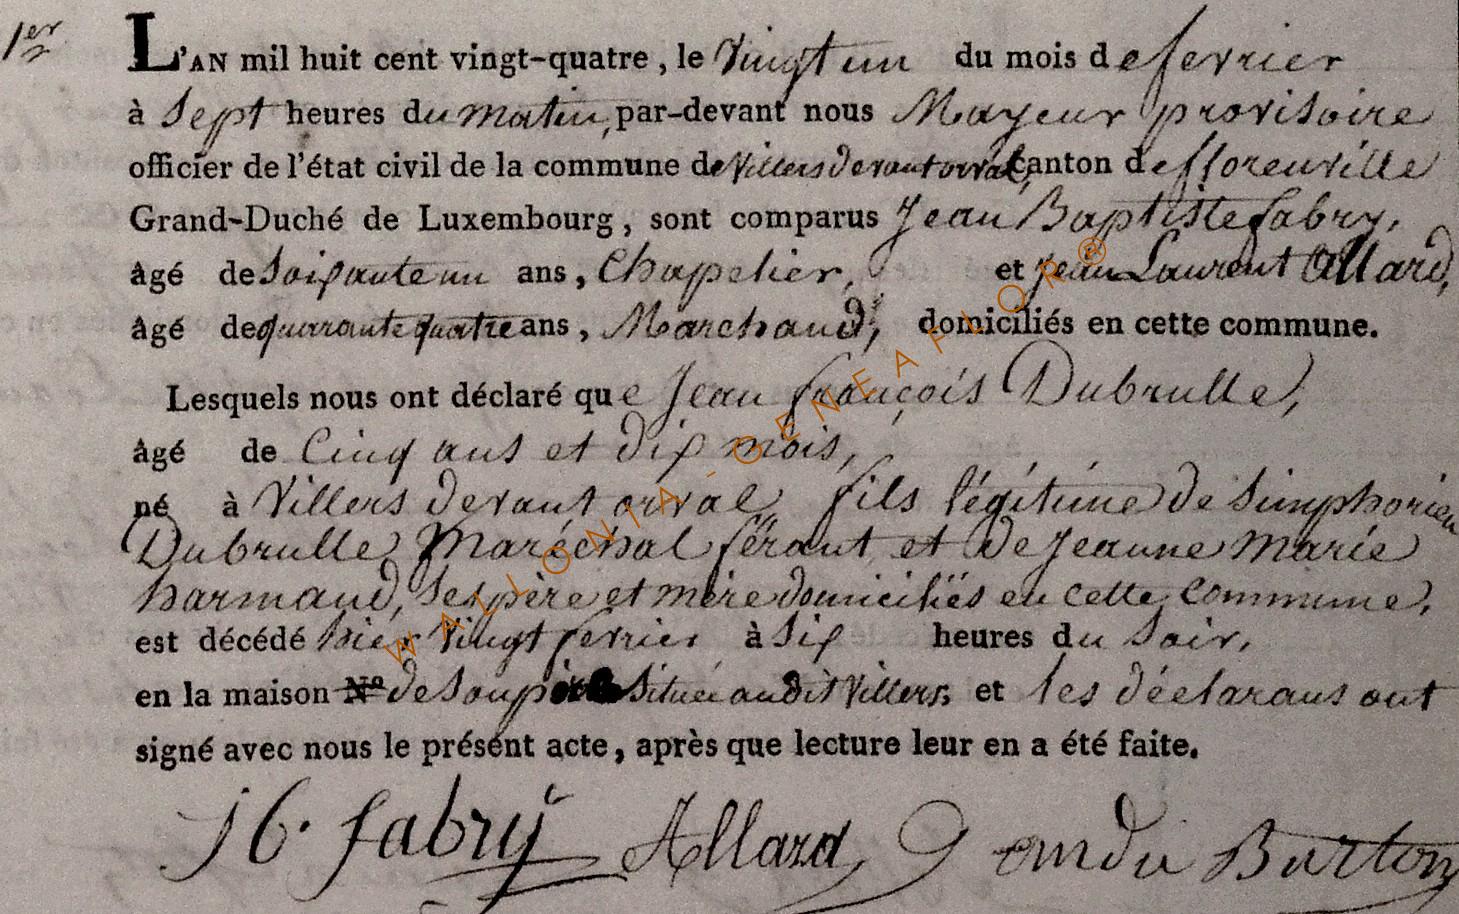 1er
L'AN mil huit cent vingt-quatre, le vingt un du mois de fevrier
à sept heures du matin, par-devant nous Mayeur provisoire
officier de l'état civil de la commune de Villers devant orval, canton de florenville
Grand-Duché de Luxembourg, sont comparus Jean Baptiste fabry,
âgé de soixante un ans, Chapelier, et jean Laurent Allard,
âgé de quarante quatre ans, Marchand, domiciliés en cette commune.
Lesquels nous ont déclaré que Jean françois Dubrulle,
âgé de Cinq ans et dix mois,
né à Villers devant orval, fils légitime de simphorien
Dubrulle, Maréchal férant et de Jeanne Marie
harmand, ses père et mère domiciliés en cette commune,
est décédé hier vingt fevrier à six heures du soir,
en la maison N° de son père située audit Villers, et les déclarans ont
signé avec nous le présent acte, après que lecture leur en a été faite.
jb. fabry Allard Burton
WALLONIA - GENEAFLOR®